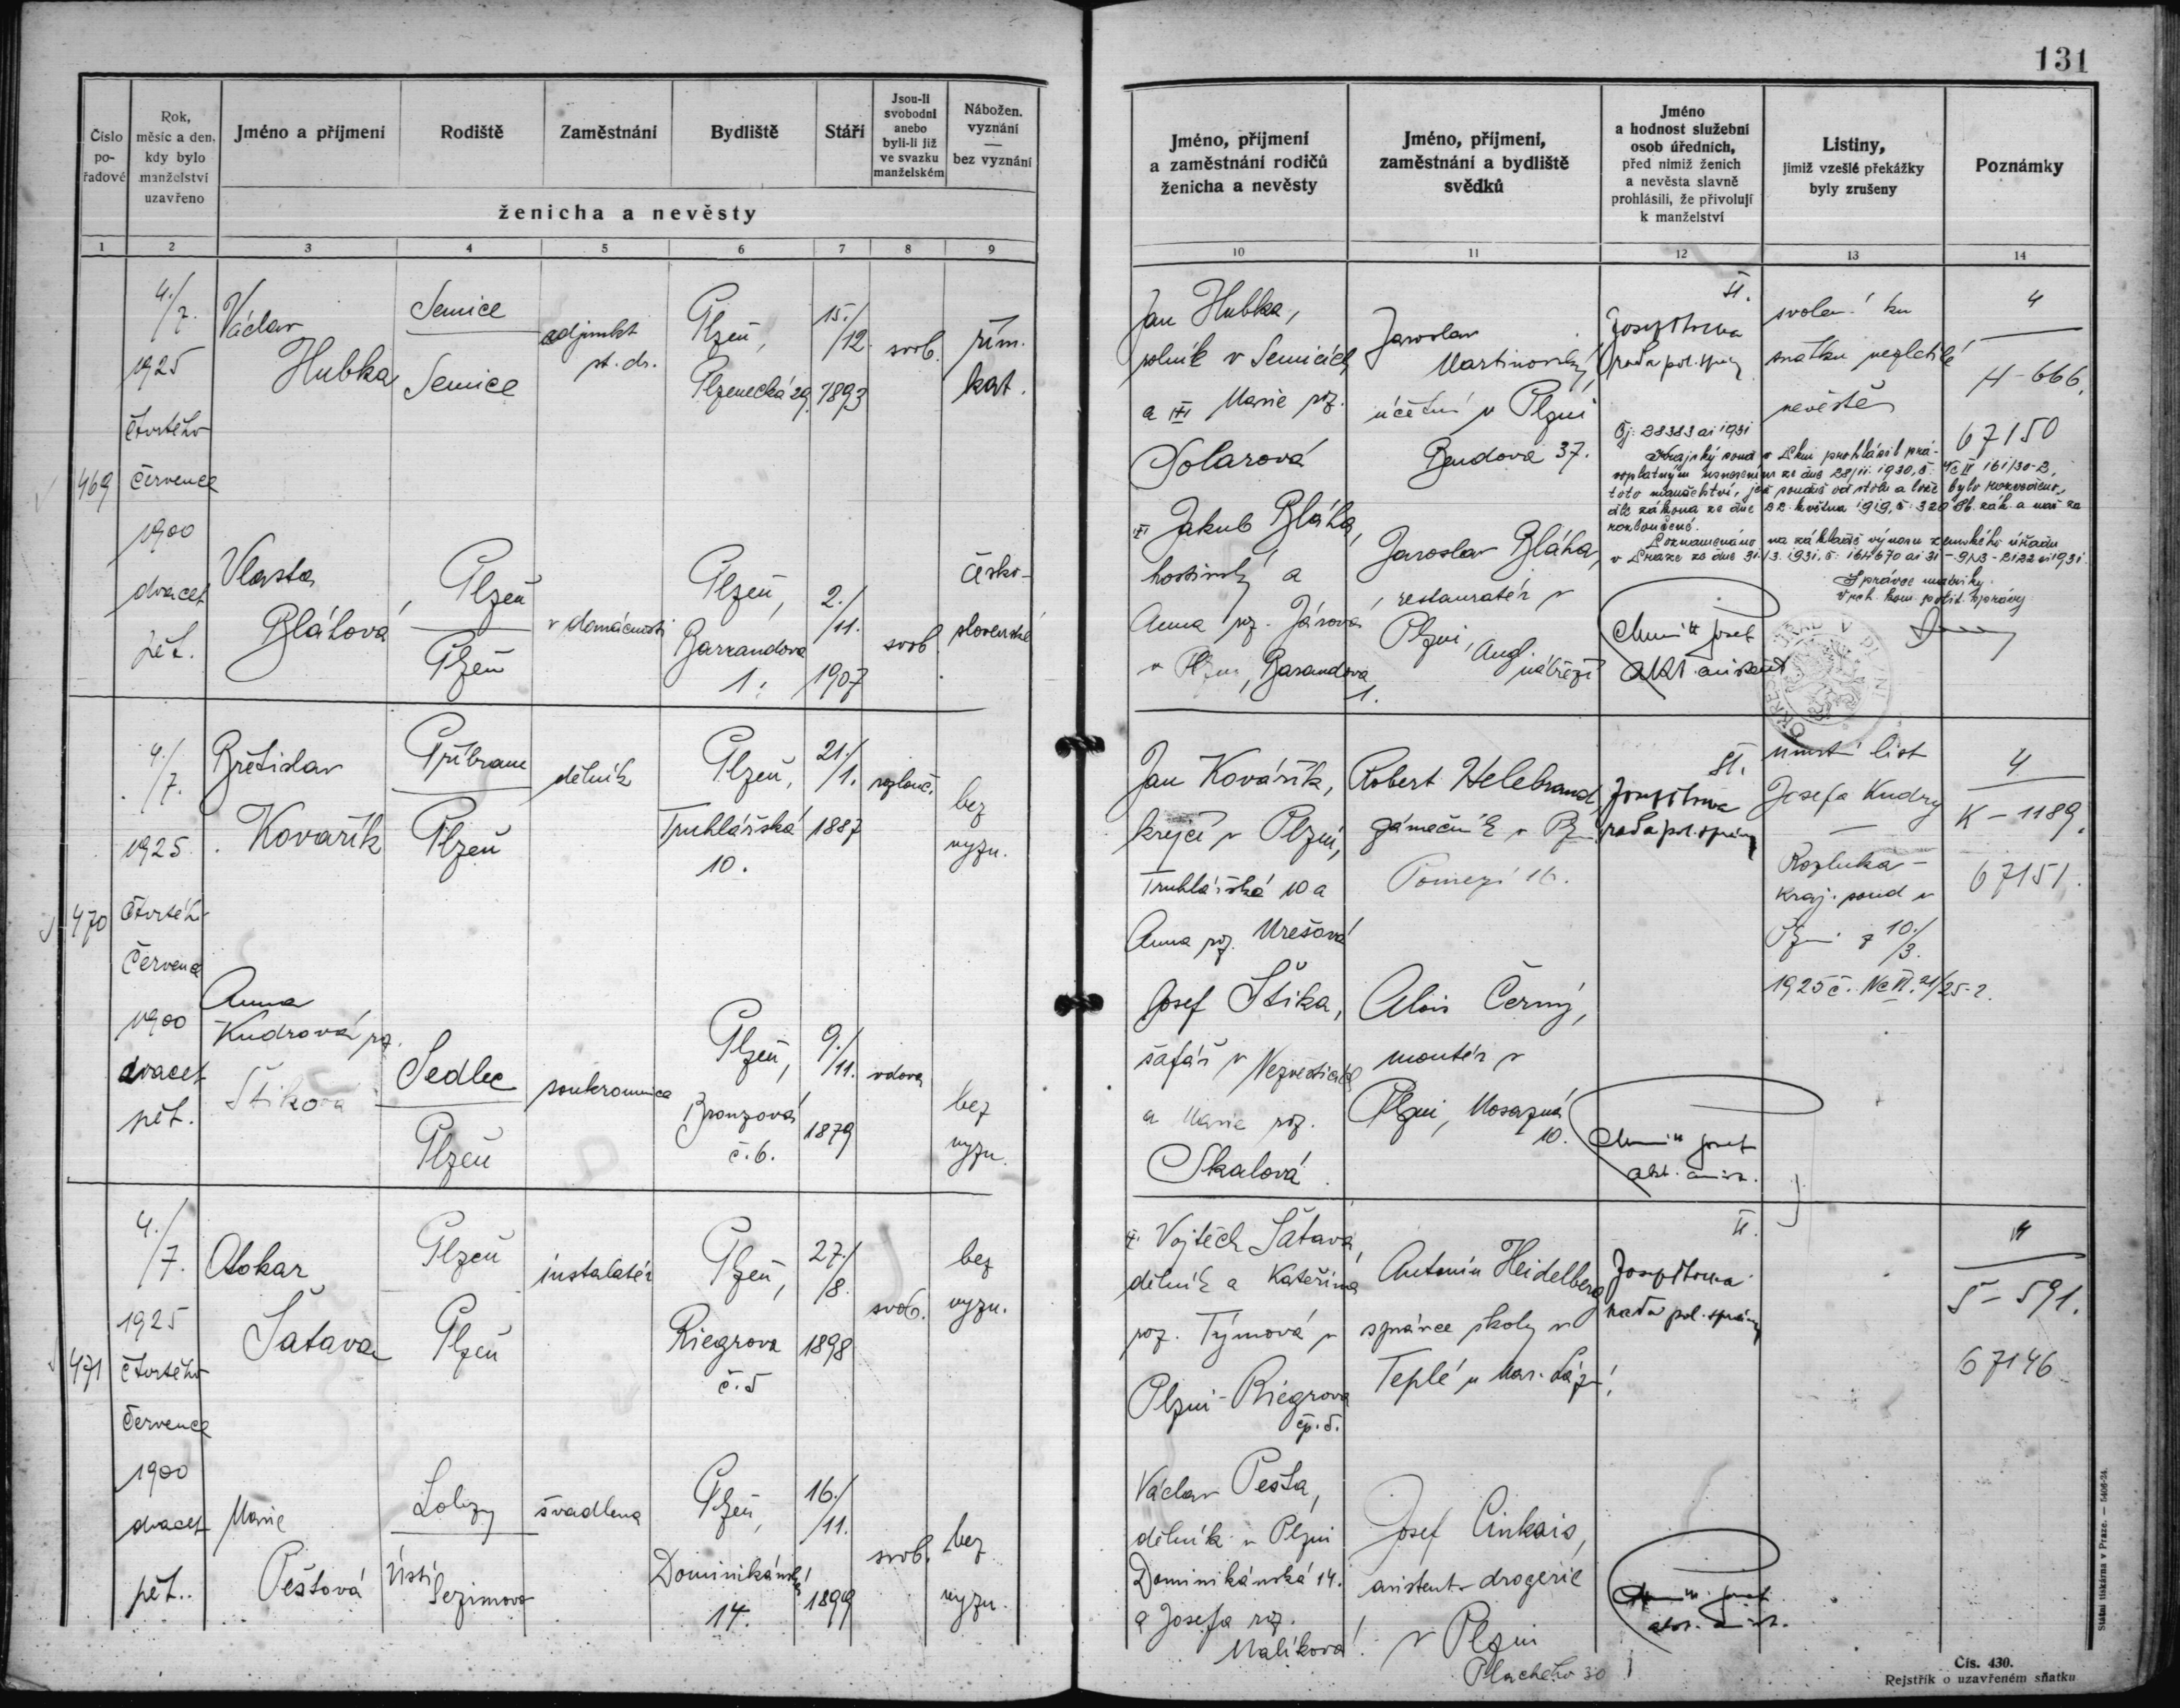 131
Číslo
po-
řadové
Rok,
měsíc a den,
kdy bylo
manželství
uzavřeno
Jméno a příjmení
Rodiště
Zaměstnání
Bydliště
Stáří
Jsou-li
svobodni
anebo
byli-li již
ve svazku
manželském
Nábožen.
vyznání
—
bez vyznání
ženicha a nevěsty
1 2 3 4 5 6 7 8 9
469
4./7.
1925
čtvrtého
července
1900
dvacet
pět.
Václav
Hubka
Semice
Semice
adjunkt
st. dr.
Plzeň,
Plzenecká 29.
15./12.
1893
svob.
řím.
kat.
Vlasta
Bláhová
Plzeň
Plzeň
v domácnosti
Plzeň,
Barrandova
1.
2./11.
1907
svob.
česko-
slovenské
470
4./7.
1925
čtvrtého
července
1900
dvacet
pět.
Břetislav
Kovařík
Příbram
Plzeň
dělník
Plzeň,
Truhlářská
10.
21./1.
1887
rozlouč.
bez
vyzn.
Anna
Kudrová roz.
Štiková
Sedlec
Plzeň
soukromnice
Plzeň,
Bronzová
č. 6.
9./11.
1879
vdova
bez
vyzn.
471
4./7.
1925
čtvrtého
července
1900
dvacet
pět.
Otokar
Šatava
Plzeň
Plzeň
instalatér
Plzeň,
Riegrova
č. 5
27./8.
1898
svob.
bez
vyzn.
Marie
Pešťová
Lobzy
Ústí
Sezimovo
švadlena
Plzeň,
Dominikánská
14.
16./11.
1899
svob.
bez
vyzn.
Jméno, příjmení
a zaměstnání rodičů
ženicha a nevěsty
Jméno, příjmení,
zaměstnání a bydliště
svědků
Jméno
a hodnost služební
osob úředních,
před nimiž ženich
a nevěsta slavně
prohlásili, že přivolují
k manželství
Listiny,
jimiž vzešlé překážky
byly zrušeny
Poznámky
10 11 12 13 14
Jan Hubka,
rolník v Semicích
a Marie roz.
Solarová
Jaroslav
Martinovský
účetní v Plzni
Bendova 37.
II.
rada pol. správy
svolení ku
sňatku nezletilé
nevěstě
4
H-666.
67150
Čj: 28383 ai 1931
Krajský soud v Plzni prohlásil prá-
voplatným usnesením ze dne 28/11. 1930, č. Nc II 161/30-2,
toto manželství, jež soudně od stolu a lože bylo rozvedeno,
dle zákona ze dne 22. května 1919, č. 320 Sb. zák. a nař. za
rozloučené.
Poznamenáno na základě výnosu zemského úřadu
v Praze ze dne 31./3. 1931. č. 164670 ai 31
Správce matriky
Vrch. kom. polit. správy
Jakub Bláha,
hostinský a
Anna roz. Járová
v Plzni, Barandova
1.
Jaroslav Bláha,
restauratér v
Plzni, Angl.
nábřeží
Josef
akt. asistent
Jan Kovářík,
krejčí v Plzni,
Truhlářská 10 a
Anna roz. Urešová
Robert Helebrand,
zámečník v Pz
Pomezí 16.
II.
rada pol. správy
úmrtní list
Josefa Kudry
—
Rozluka -
kraj. soud v
Plzni z 10./3.
1925 č. Nc VI. 21/25-2.
4
K-1189.
67151.
Josef Štika,
šafář v Nezvěsticích
a Marie roz.
Skalová
Alois Černý,
montér v
Plzni, Mosazná
10.
Josef
akt. asist.
Vojtěch Šatava,
dělník a Kateřina
roz. Týmová v
Plzni - Riegrova
čp. 5.
Antonín Heidelberg
správce školy v
Teplé u Mar. Lázní
II.
rada pol. správy
4
Š-591.
67146
Václav Pešta,
dělník v Plzni
Dominikánská 14.
a Josefa roz.
Malíková
Josef Cinkais,
asistent drogerie
v Plzni
Plachého 30
Státní tiskárna v Praze. — 5406-24.
Čís. 430.
Rejstřík o uzavřeném sňatku